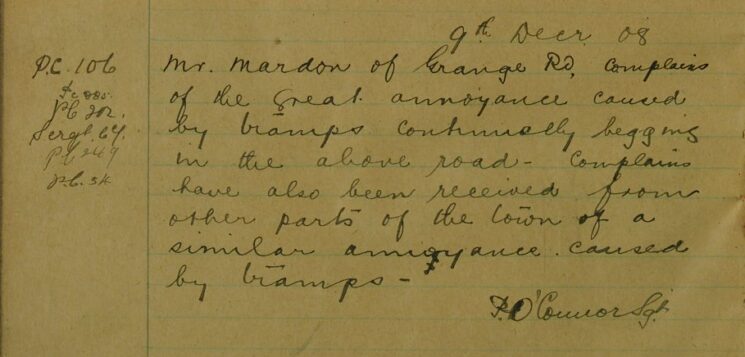 9th Decr. 08
P.C. 106
Mr. Mardon of Grange Rd, Complains
Pc 202.
of the great annoyance caused
Sergt. 64.
by tramps continually begging
Pc 249
in the above road - Complains
P.C. 34
have also been received from
other parts of the town of a
similar annoyance caused
by tramps -
P. O'Connor Sgt.